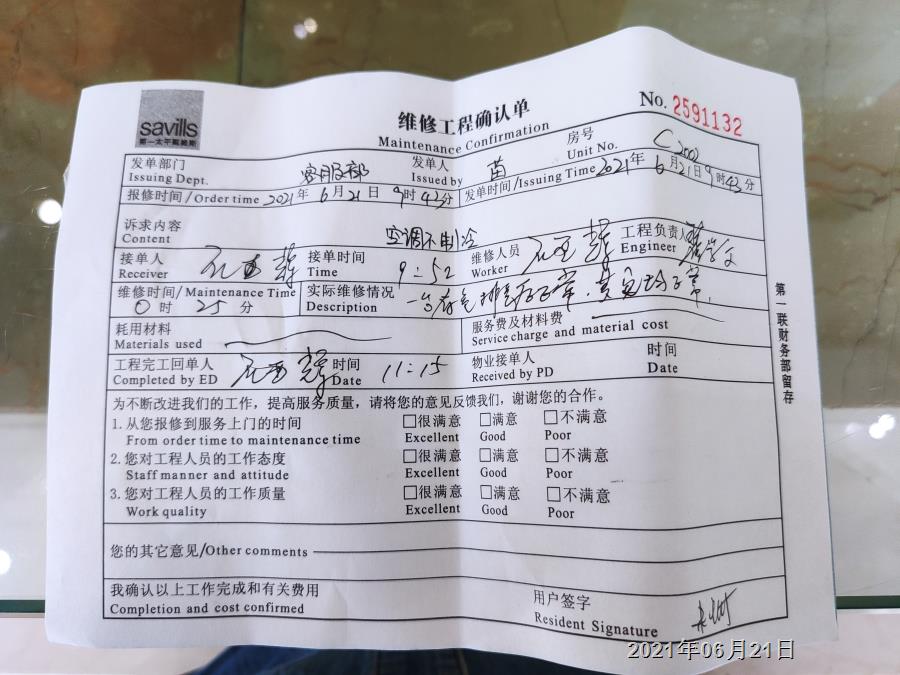 savills
第一太平戴维斯
维修工程确认单
Maintenance Confirmation
No. 2591132
发单部门 客服部 发单人 苗 房号 C2002
Issuing Dept. Issued by Unit No.
报修时间/Order time 2021年6月21日9时43分 发单时间/Issuing Time 2021年6月21日9时43分
诉求内容 空调不制冷
Content
接单人 接单时间 9:52 维修人员 工程负责人
Receiver Time Worker Engineer
维修时间/Maintenance Time 实际维修情况
0时25分 Description
耗用材料 服务费及材料费
Materials used Service charge and material cost
工程完工回单人 时间 11:15 物业接单人 时间
Completed by ED Date Received by PD Date
为不断改进我们的工作，提高服务质量，请将您的意见反馈我们，谢谢您的合作。
1.从您报修到服务上门的时间 □很满意 □满意 □不满意
From order time to maintenance time Excellent Good Poor
2.您对工程人员的工作态度 □很满意 □满意 □不满意
Staff manner and attitude Excellent Good Poor
3.您对工程人员的工作质量 □很满意 □满意 □不满意
Work quality Excellent Good Poor
您的其它意见/Other comments
我确认以上工作完成和有关费用
Completion and cost confirmed
用户签字
Resident Signature
第一联财务部留存
2021年06月21日